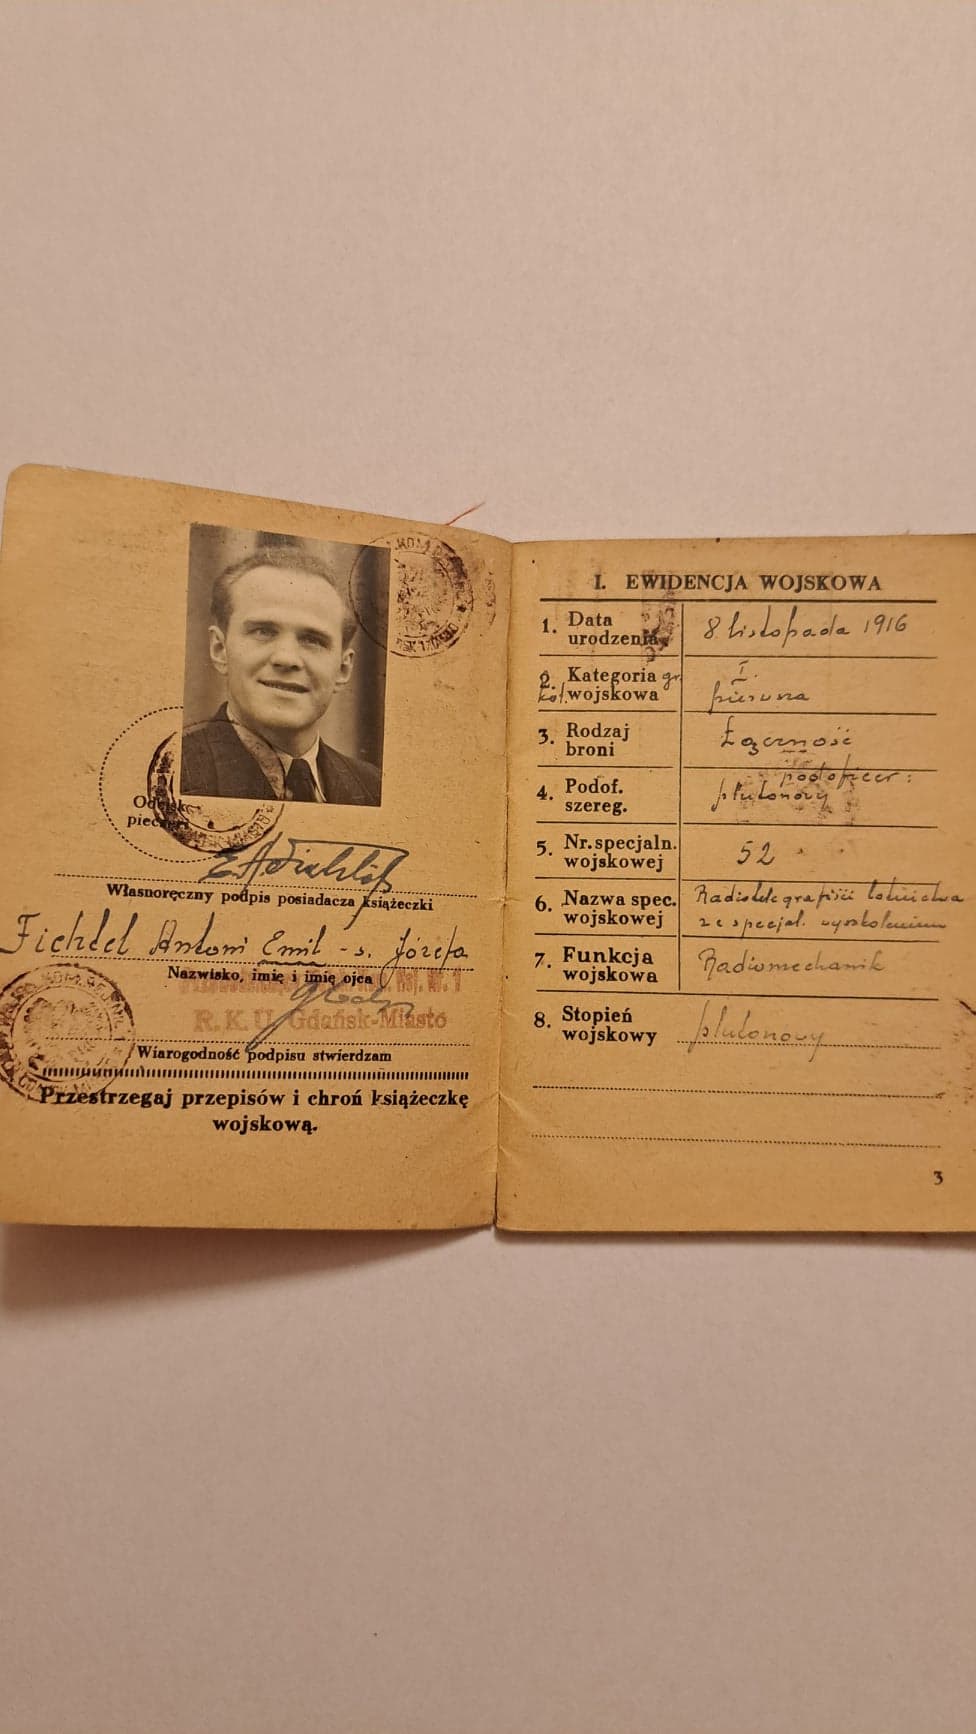 Odcisk
pieczęci
Własnoręczny podpis posiadacza książeczki
Fichtel Antoni Emil - s. Józefa
Nazwisko, imię i imię ojca
R.K.U. Gdańsk-Miasto
Wiarogodność podpisu stwierdzam
Przestrzegaj przepisów i chroń książeczkę
wojskową.
I. EWIDENCJA WOJSKOWA
1. Data urodzenia 8 listopada 1916
2. Kategoria gr. I.
kol. wojskowa pierwsza
3. Rodzaj broni Łączność
podoficer:
4. Podof. szereg. plutonowy
5. Nr. specjaln. wojskowej 52
6. Nazwa spec. Radiotelegrafiści lotnictwa
wojskowej ze specjal. wyszkoleniem
7. Funkcja wojskowa Radiomechanik
8. Stopień wojskowy plutonowy
3